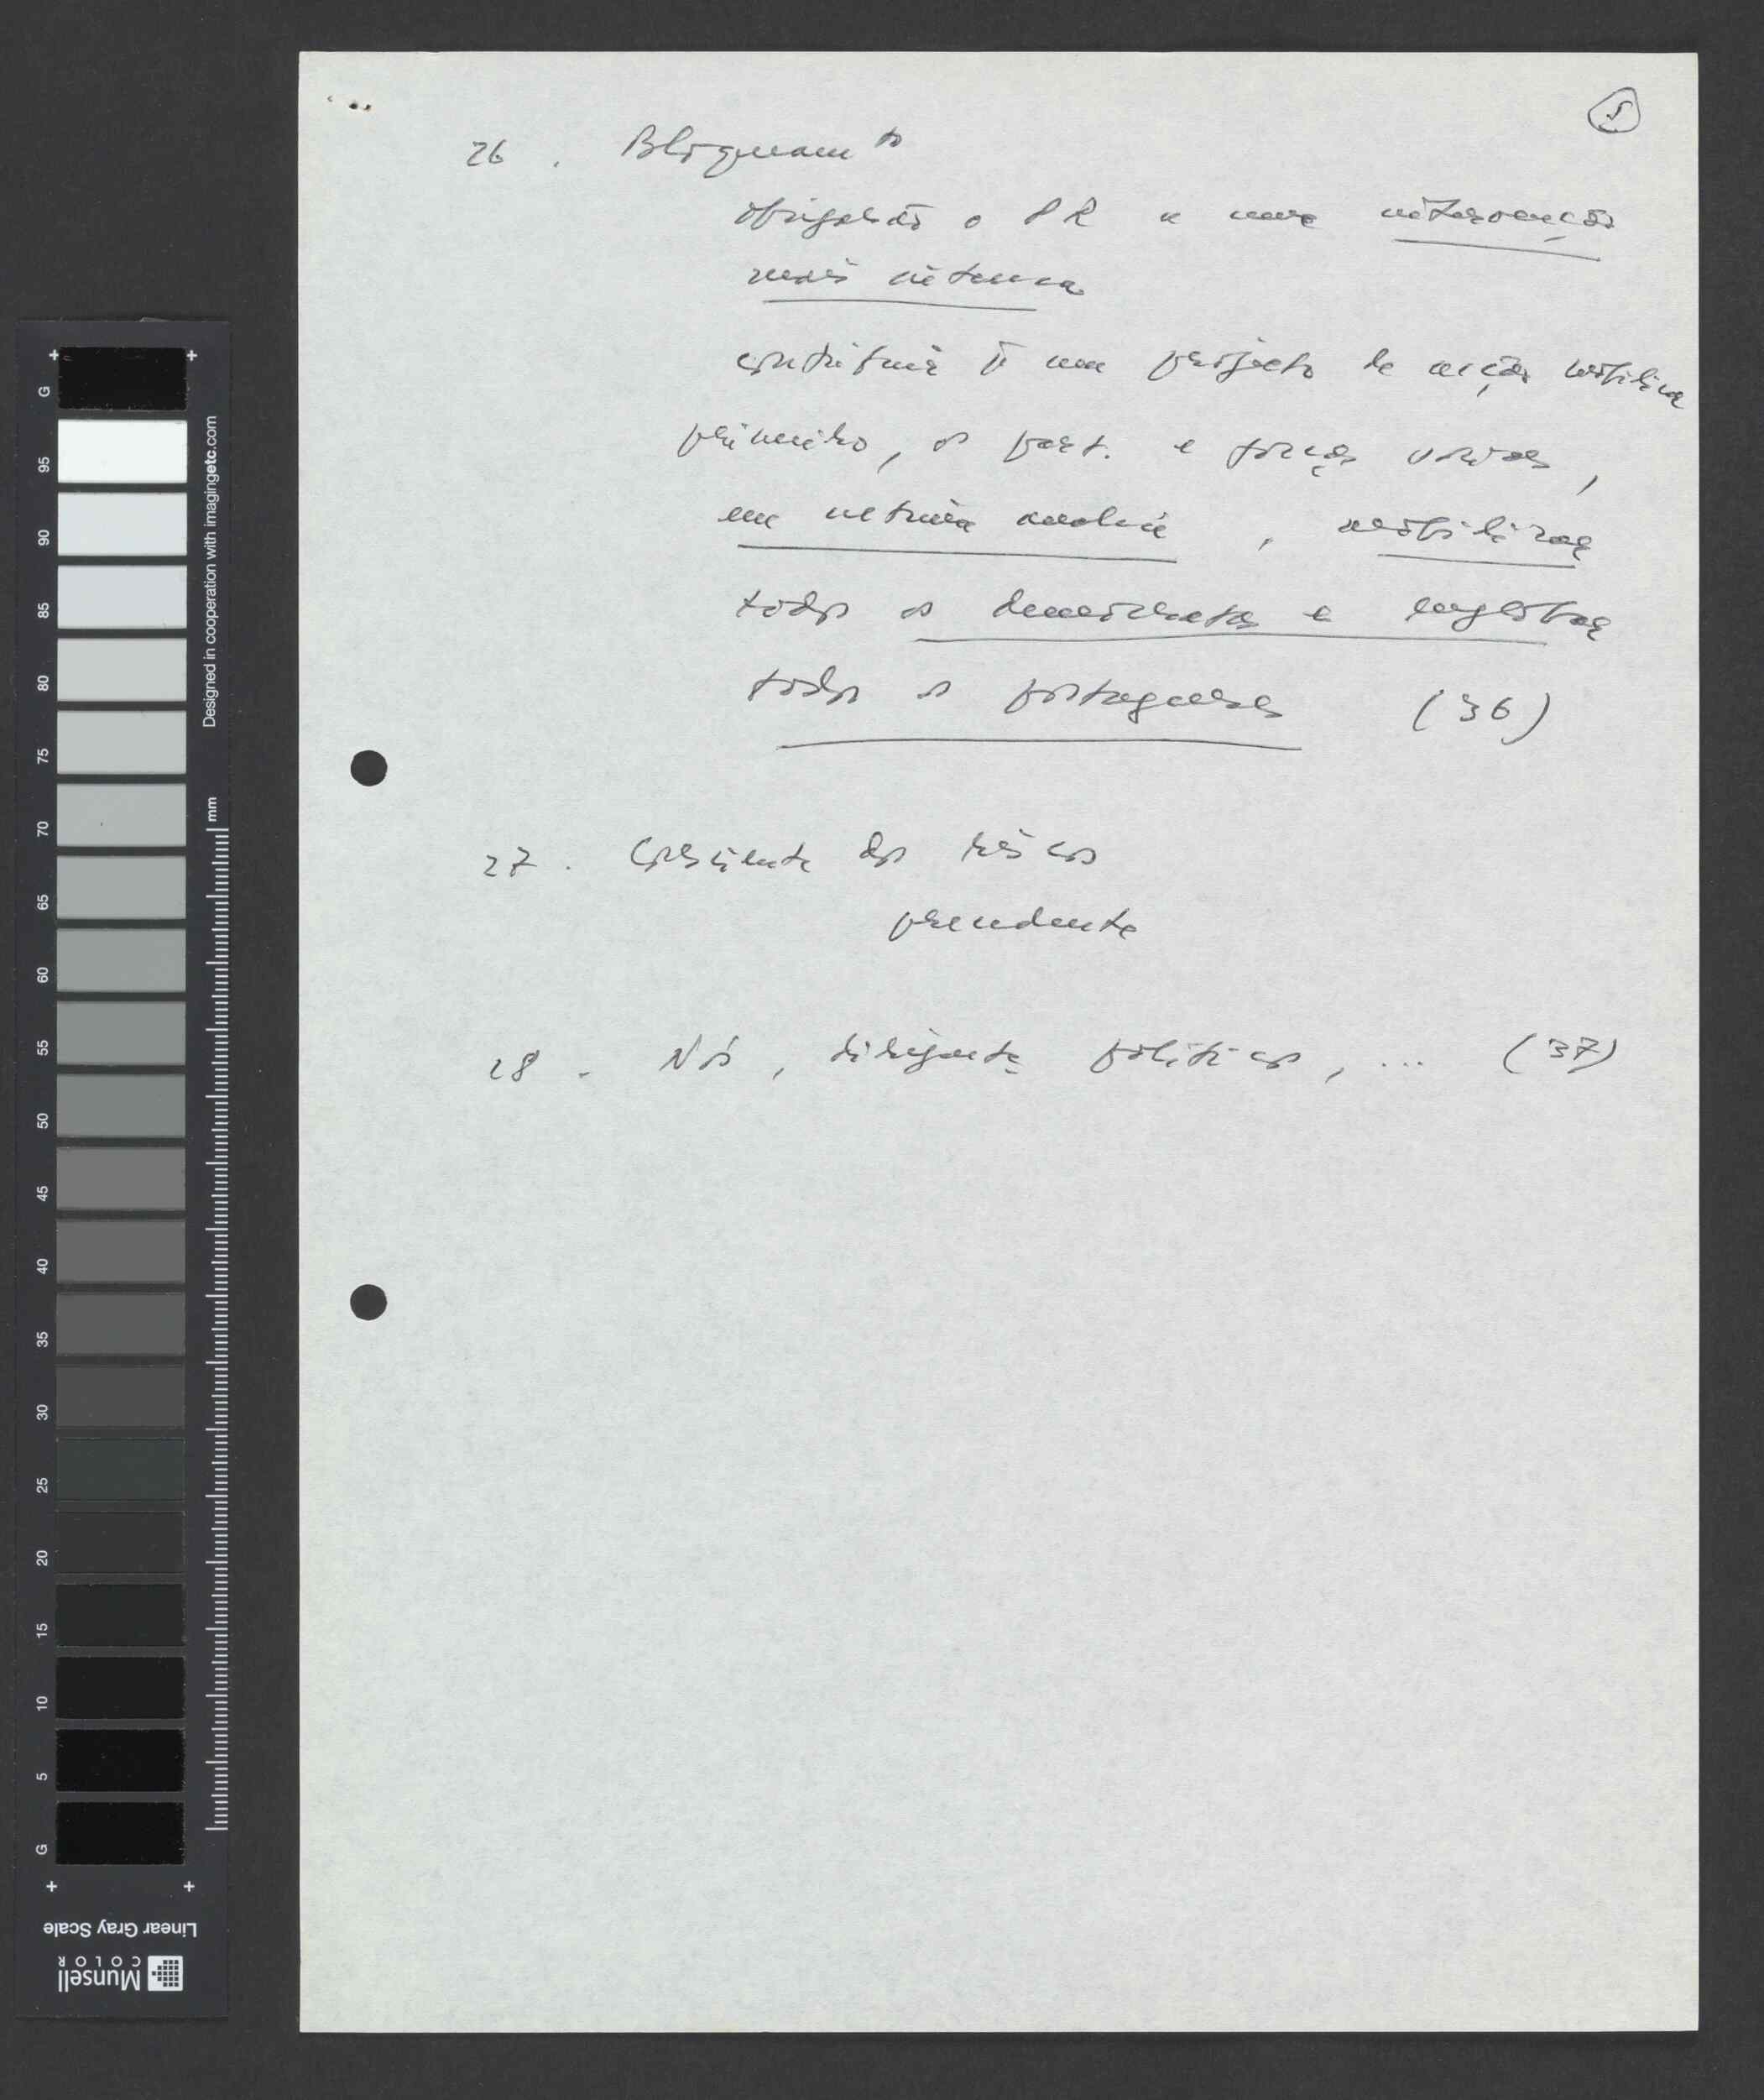 5
26. Bloqueam.to
obrigarão o PR a uma intervenção
mais intensa
contribuir p. um projecto de acção política
primeiro, os part. e forças sociais,
em última análise, mobilizar
todos os democratas e englobar
todos os portugueses (36)
27. Consciente dos riscos
prudente
28. Nós, dirigentes políticos, ... (37)
G 95 90 85 80 75 70 65 60 55 50 45 40 35 30 25 20 15 10 5 G
Designed in cooperation with imagingetc.com
mm
Linear Gray Scale
Munsell
COLOR